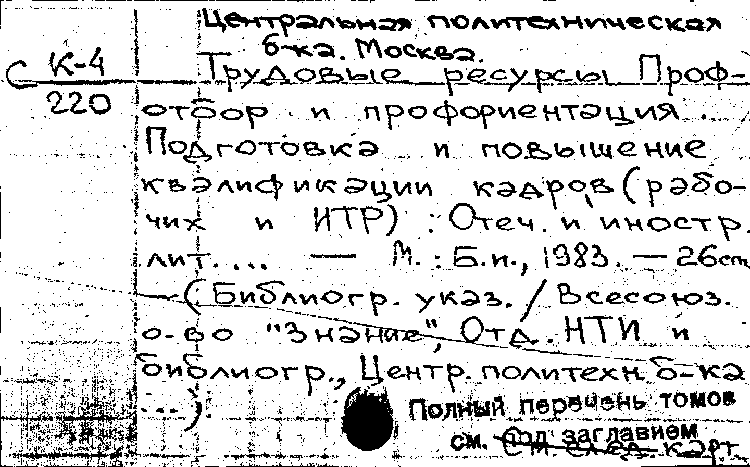 Центральная политехническая
б-ка. Москва.
С К-4
220
Трудовые ресурсы Проф-
отбор и профориентация.
Подготовка и повышение
квалификации кадров (рабо-
чих и ИТР) : Отеч. и иностр.
лит. ... — М. : Б.и., 1983. — 26 cm
— (Библиогр. указ. / Всесоюз.
о-во "Знание", Отд. НТИ и
библиогр., Центр. политехн. б-ка
...).
Полный перечень томов
см. под заглавием
см след карт.